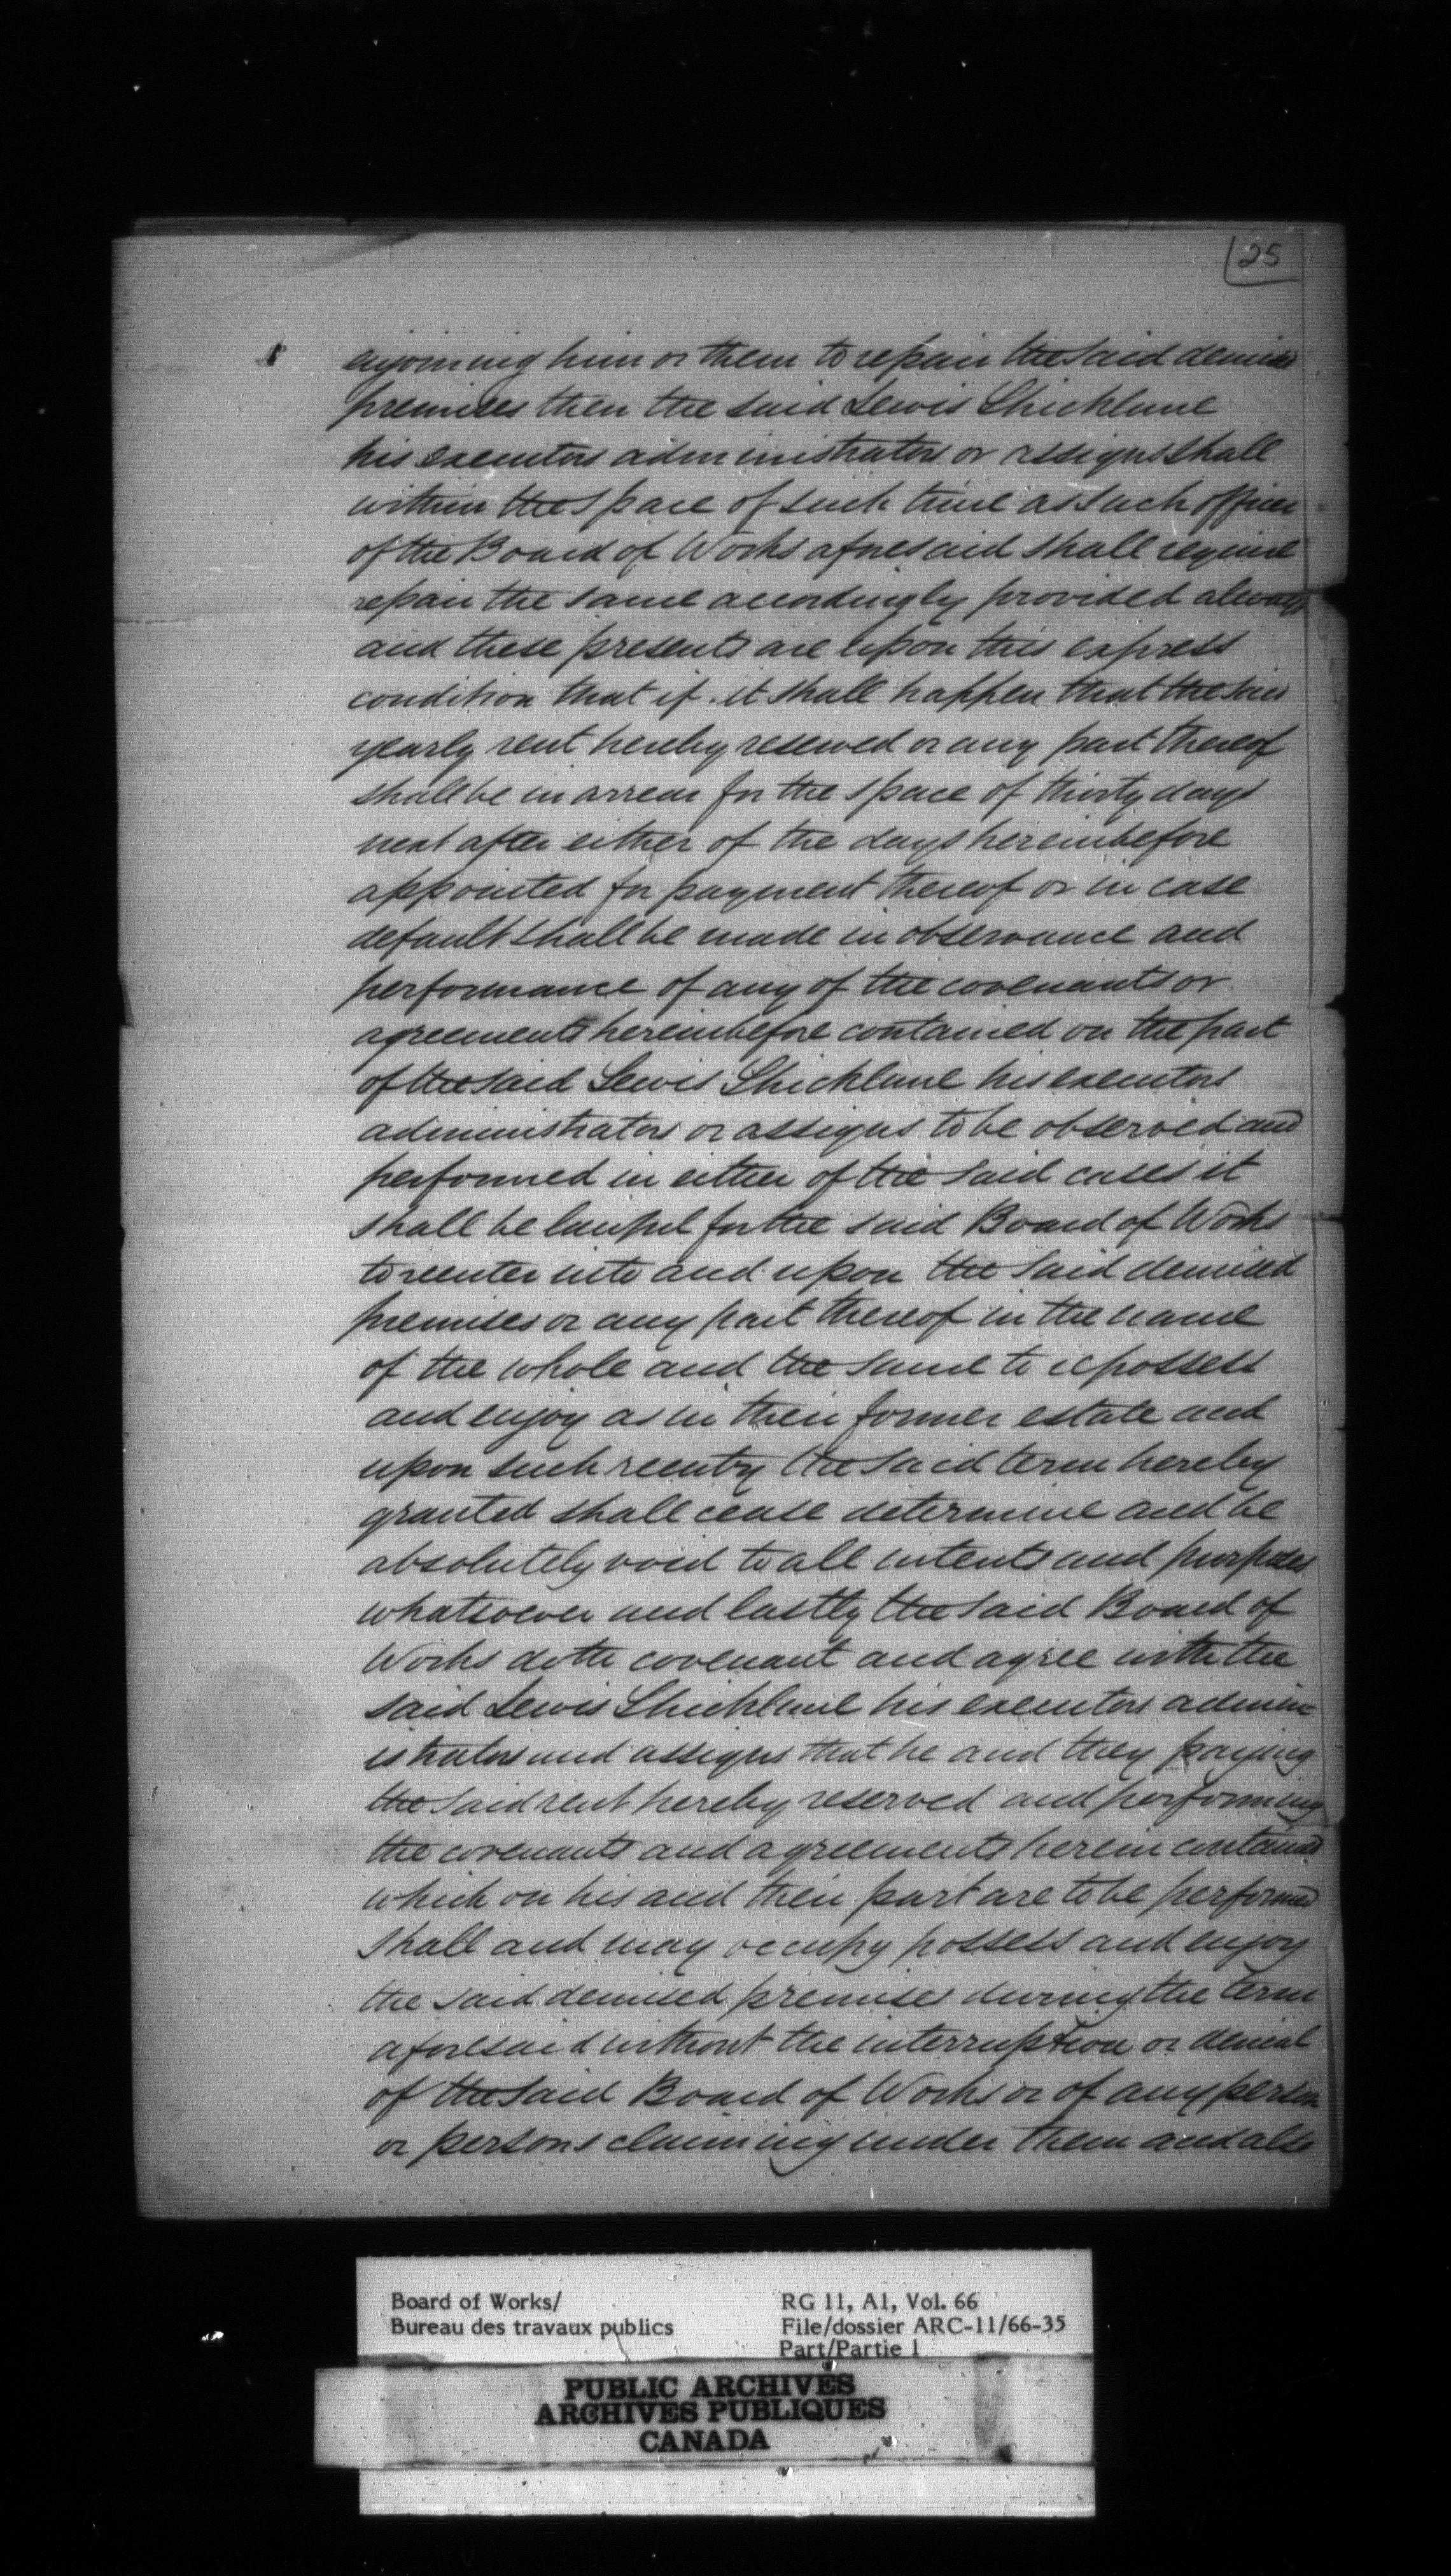 25
enjoining him or them to repair the said demised
premises then the said Lewis Shickluné
his executors administrators or assigns shall
within the space of such time as such officer
of the Board of Works aforesaid shall require
repair the same accordingly provided always
and these presents are upon this express
condition that if it shall happen that the said
yearly rent hereby reserved or any part thereof
shall be in arrear for the space of thirty days
next after either of the days hereinbefore
appointed for payment thereof or in case
default shall be made in observance and
performance of any of the covenants or
agreements hereinbefore contained on the part
of the said Lewis Shicklune his executors
administrators or assigns to be observed and
performed in either of the said cases it
shall be lawful for the said Board of Works
to reenter into and upon the said demised
premises or any part thereof in the name
of the whole and the same to repossess
and enjoy as in their former estate and
upon such reentry the said term hereby
granted shall cease determine and be
absolutely void to all intents and purposes
whatsoever and lastly the said Board of
Works doth covenant and agree with the
said Lewis Shicklune his executors admin-
istrators and assigns that he and they paying
the said rent hereby reserved and performing
the covenants and agreements herein contained
which on his and their part are to be performed
shall and may occupy possess and enjoy
the said demised premises during the term
aforesaid without the interruption or denial
of the said Board of Works or of any person
or persons claiming under them and also
Board of Works/
Bureau des travaux publics
RG 11, A1, Vol. 66
File/dossier ARC-11/66-35
Part/Partie 1
PUBLIC ARCHIVES
ARCHIVES PUBLIQUES
CANADA